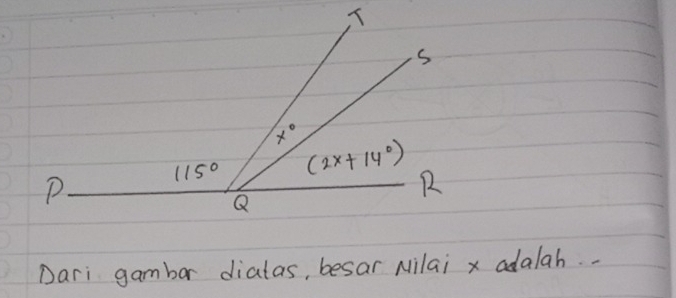 T
S
x°
115°
(2x+14°)
P
Q
R
Dari gambar diatas, besar Nilai x adalah...